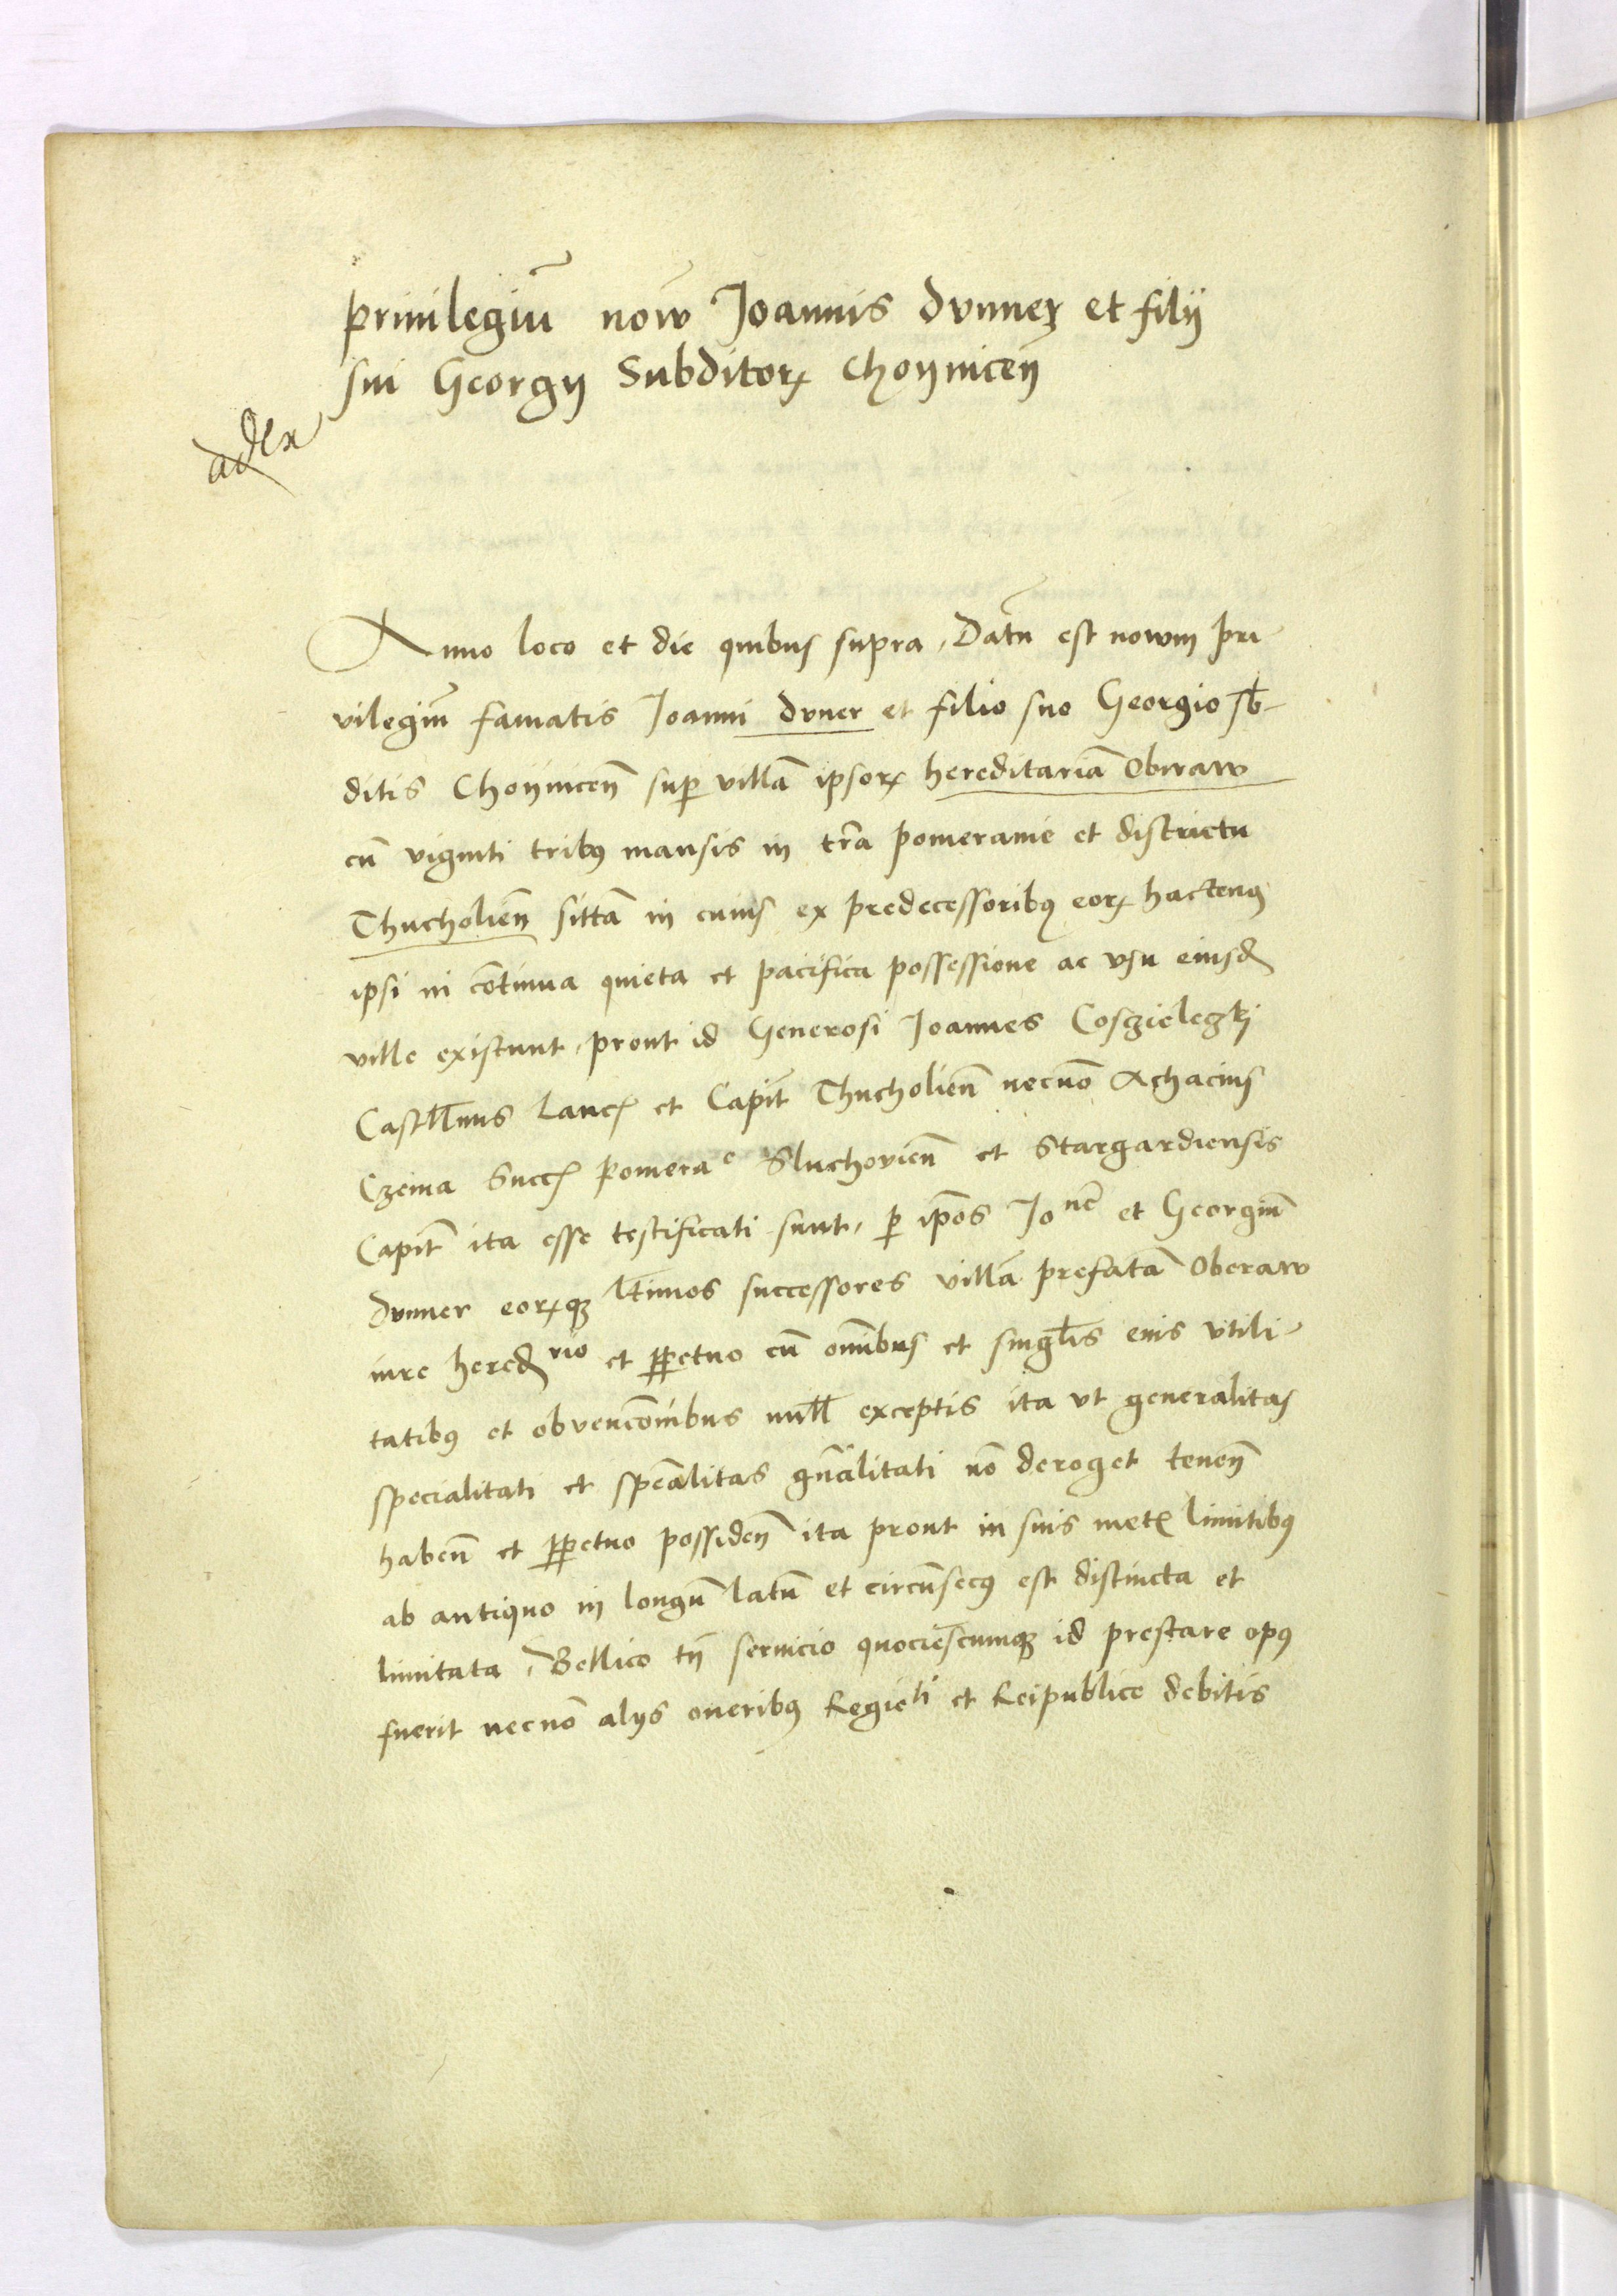 Priuilegiū nouū Joannis dvnner et filij
sui Georgij Subditorꝝ Choynicēn
Anno loco et die quibus supra, Datū est nowm pri-
vilegiū famatis Joanni dvner et filio suo Georgio sb-
ditis Choynicen̄ suꝑ villā ipsorꝝ hereditariā Obraw
cū viginti tribꝰ mansis in tr̄a pomeranie et districtu
Thucholien̄ sittā in cuius ex predecessoribꝰ eorꝝ hactenꝰ
ipsi in cōtinua quieta et pacifica possessione ac vsu eiusd̄
ville existunt, prout id Generosi Joannes Cosczielezkj
Castll̄nus Lancꝭ et Capit̄ Thucholien̄ necnō Achacius
Czema Succꝭ Pomeraᵉ Sluchovien̄ et Stargardiensis
Capit̄ ita esse testificati sunt, ꝑ ip̄os Joⁿᵉ et Georgiū
dvnner eorꝝqꝫ lt̄imos successores villā prefatā Oberaw
iure hered̄ʳⁱᵒ et ꝑpetuo cū om̄ibus et singl̄is eius vtili-
tatibꝰ et obvenc̄onibus null̄ exceptis ita vt generalitas
specialitati et spēalitas gn̄ālitati nō deroget tenen̄
haben̄ et ꝑpetuo possiden̄ ita prout in suis metꝭ limitibꝰ
ab antiquo in longū latū et circūsecꝰ est distincta et
limitata, Bellico tn̄ seruicio quociescumqꝫ id prestare opꝰ
fuerit necnō alijs oneribꝰ Regieᵗⁱ et Reipublice debitis